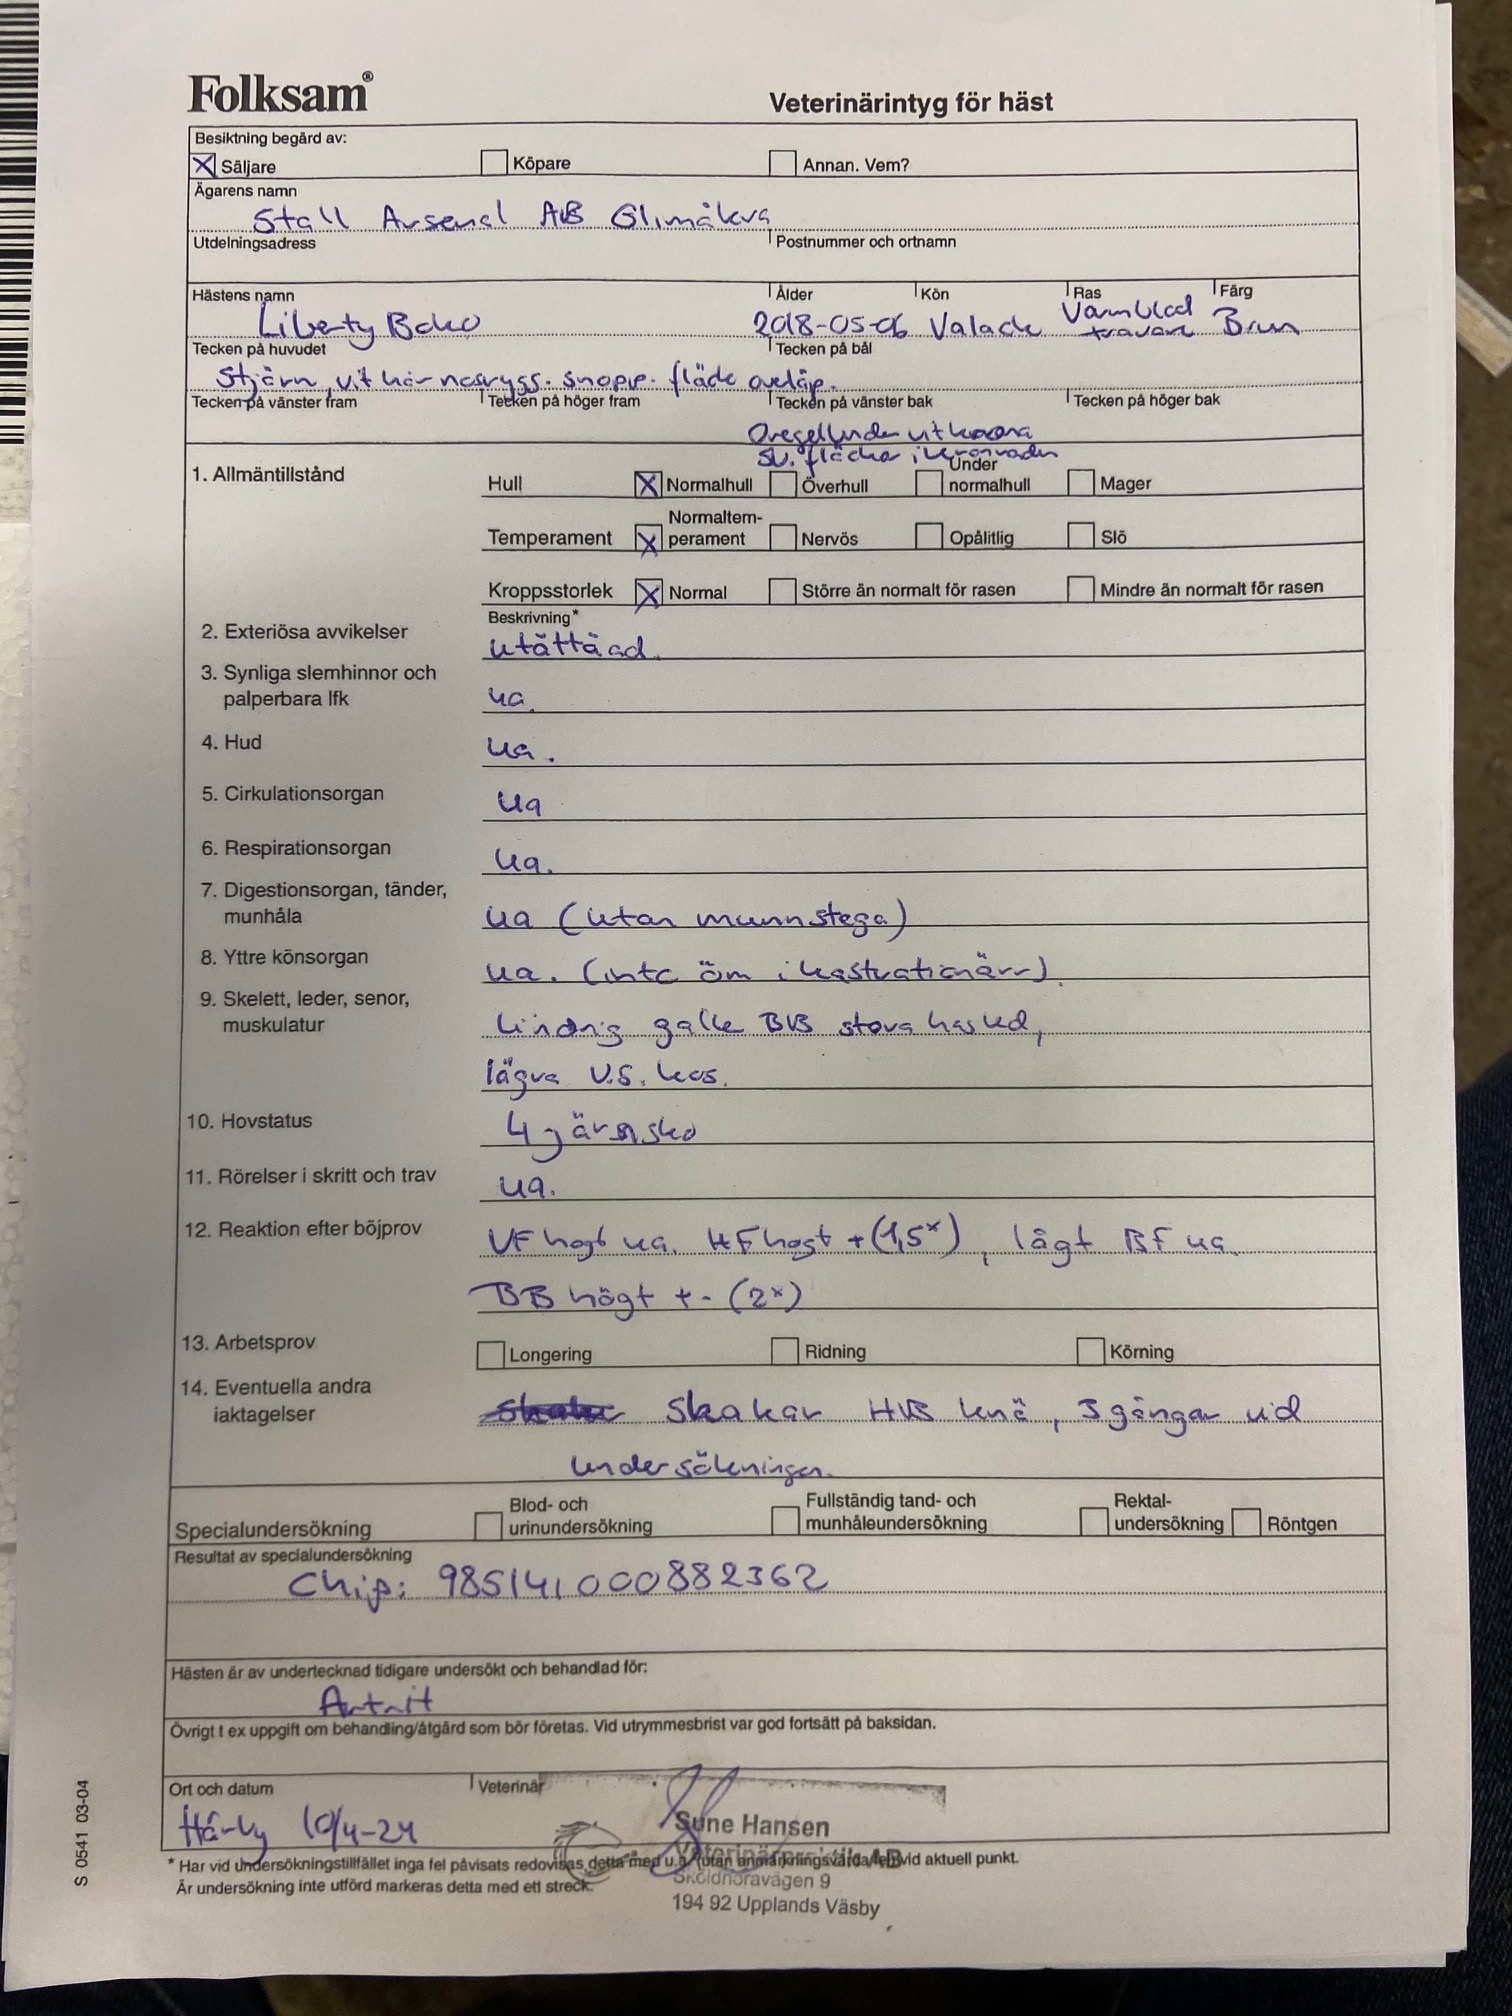 Folksam®
Veterinärintyg för häst
Besiktning begärd av:
X Säljare Köpare Annan. Vem?
Ägarens namn
Stall Arsenal AB Glimåkra
Utdelningsadress Postnummer och ortnamn
Hästens namn Ålder Kön Ras Färg
Liberty Boko 2018-05-06 Valack Varmblod travare Brun
Tecken på huvudet Tecken på bål
Stjärn, vit hår nosrygg. snopp. fläck överläp.
Tecken på vänster fram Tecken på höger fram Tecken på vänster bak Tecken på höger bak
Oregelbunden vit krona
sv. fläckar i kronranden
1. Allmäntillstånd
Hull X Normalhull Överhull Under normalhull Mager
Temperament X Normaltem-perament Nervös Opålitlig Slö
Kroppsstorlek X Normal Större än normalt för rasen Mindre än normalt för rasen
Beskrivning*
2. Exteriösa avvikelser utåttåad
3. Synliga slemhinnor och
palperbara lfk ua.
4. Hud ua.
5. Cirkulationsorgan ua
6. Respirationsorgan ua.
7. Digestionsorgan, tänder,
munhåla ua (utan munnstega)
8. Yttre könsorgan ua. (inte öm i kastrationärr)
9. Skelett, leder, senor,
muskulatur lindrig galle BB stora hasled,
lägra V.S. has.
10. Hovstatus 4 järnsko
11. Rörelser i skritt och trav ua.
12. Reaktion efter böjprov VF högt ua. HF högt + (1,5*), lågt BF ua.
BB högt +- (2*)
13. Arbetsprov Longering Ridning Körning
14. Eventuella andra
iaktagelser Skakar HB knä, 3 gångar vid
undersökningen.
Specialundersökning Blod- och urinundersökning Fullständig tand- och munhåleundersökning Rektal-undersökning Röntgen
Resultat av specialundersökning
Chip: 985141000882362
Hästen är av undertecknad tidigare undersökt och behandlad för:
Artrit
Övrigt t ex uppgift om behandling/åtgärd som bör företas. Vid utrymmesbrist var god fortsätt på baksidan.
Ort och datum Veterinär
10/4-24
Sune Hansen
AB
Sköldnoravägen 9
194 92 Upplands Väsby
* Har vid undersökningstillfället inga fel påvisats redovisas detta med u.a. (utan anmärkningsvärda fel) vid aktuell punkt.
Är undersökning inte utförd markeras detta med ett streck.
S 0541 03-04